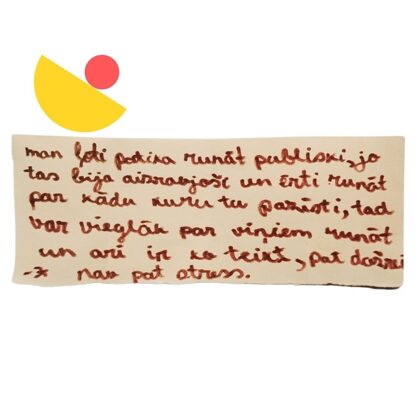 man ļoti patika runāt publiski, jo
tas bija aizraujoši un ērti runāt
par kādu kuru tu pazīsti, tad
var vieglāk par viņiem runāt
un arī ir ko teikt, pat dažrei
-z nav pat stress.